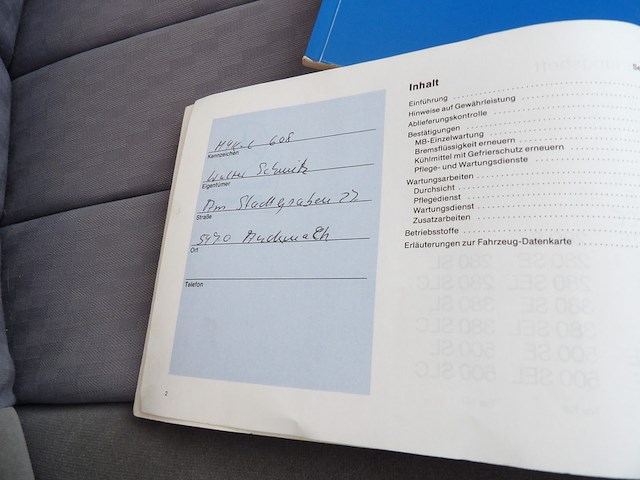 MYK-L 608
Kennzeichen
Walter Schmitz
Eigentümer
Am Stadtgraben 22
Straße
5470 Andernach
Ort
Telefon
2
Inhalt
Einführung
Hinweise auf Gewährleistung
Ablieferungskontrolle
Bestätigungen
MB-Einzelwartung
Bremsflüssigkeit erneuern
Kühlmittel mit Gefrierschutz erneuern
Pflege- und Wartungsdienste
Wartungsarbeiten
Durchsicht
Pflegedienst
Wartungsdienst
Zusatzarbeiten
Betriebsstoffe
Erläuterungen zur Fahrzeug-Datenkarte